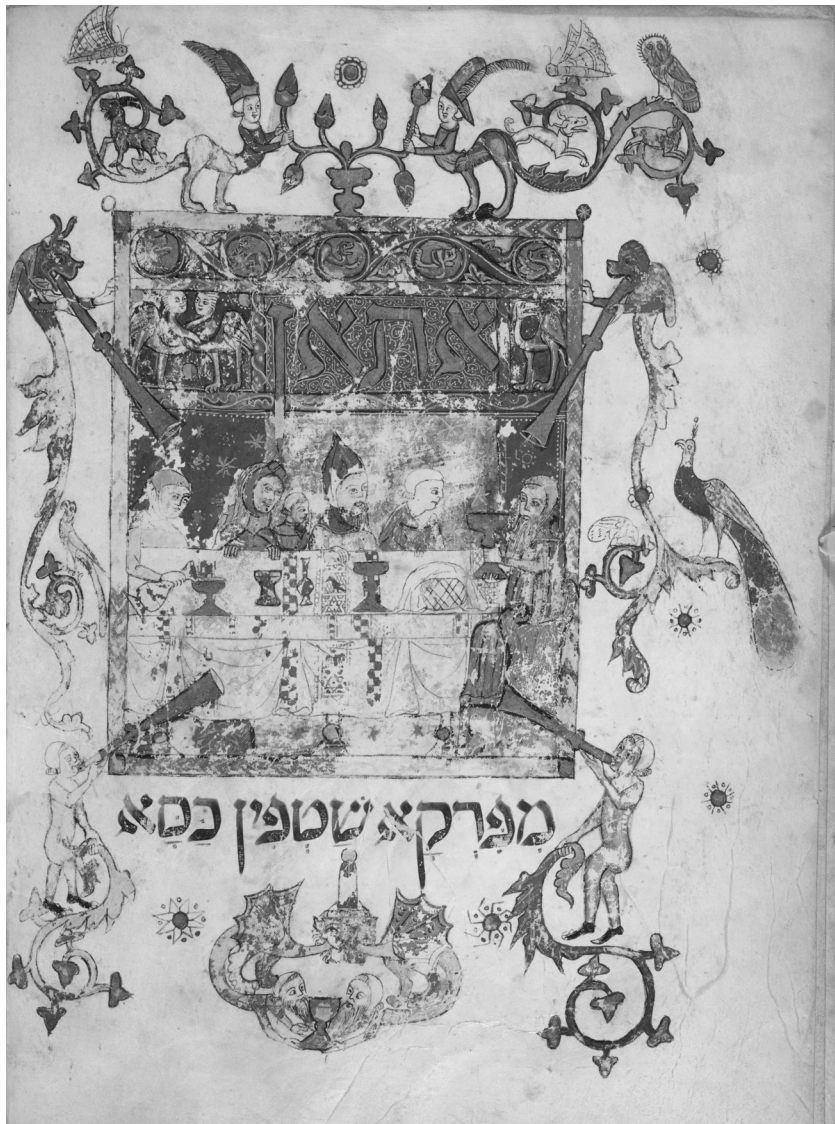 אתאן
מִפִּרְקָא שָׁטְפִין כַּסָא